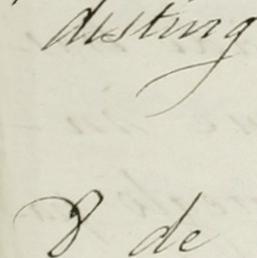 disting
8 de